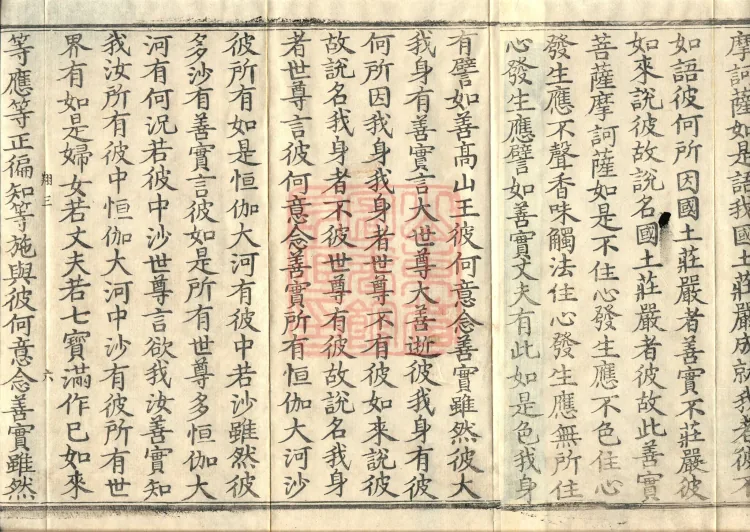 摩訶薩如是語我國土莊嚴成就我者彼不
如語彼何所因國土莊嚴者善實不莊嚴彼
如來說彼故說名國土莊嚴者彼故此善實
菩薩摩訶薩如是不住心發生應不色住心
發生應不聲香味觸法住心發生應無所住
心發生應譬如善實丈夫有此如是色我身
有譬如善高山王彼何意念善實雖然彼大
我身有善實言大世尊大善逝彼我身有彼
何所因我身我身者世尊不有彼如來說彼
故說名我身者不彼世尊有彼故說名我身
者世尊言彼何意念善實所有恒伽大河沙
彼所有如是恒伽大河有彼中若沙雖然彼
多沙有善實言彼如是所有世尊多恒伽大
河有何況若彼中沙世尊言欲我汝善實知
我汝所有彼中恒伽大河中沙有彼所有世
界有如是婦女若丈夫若七寶滿作已如來
翔三 六
等應等正徧知等施與彼何意念善實雖然